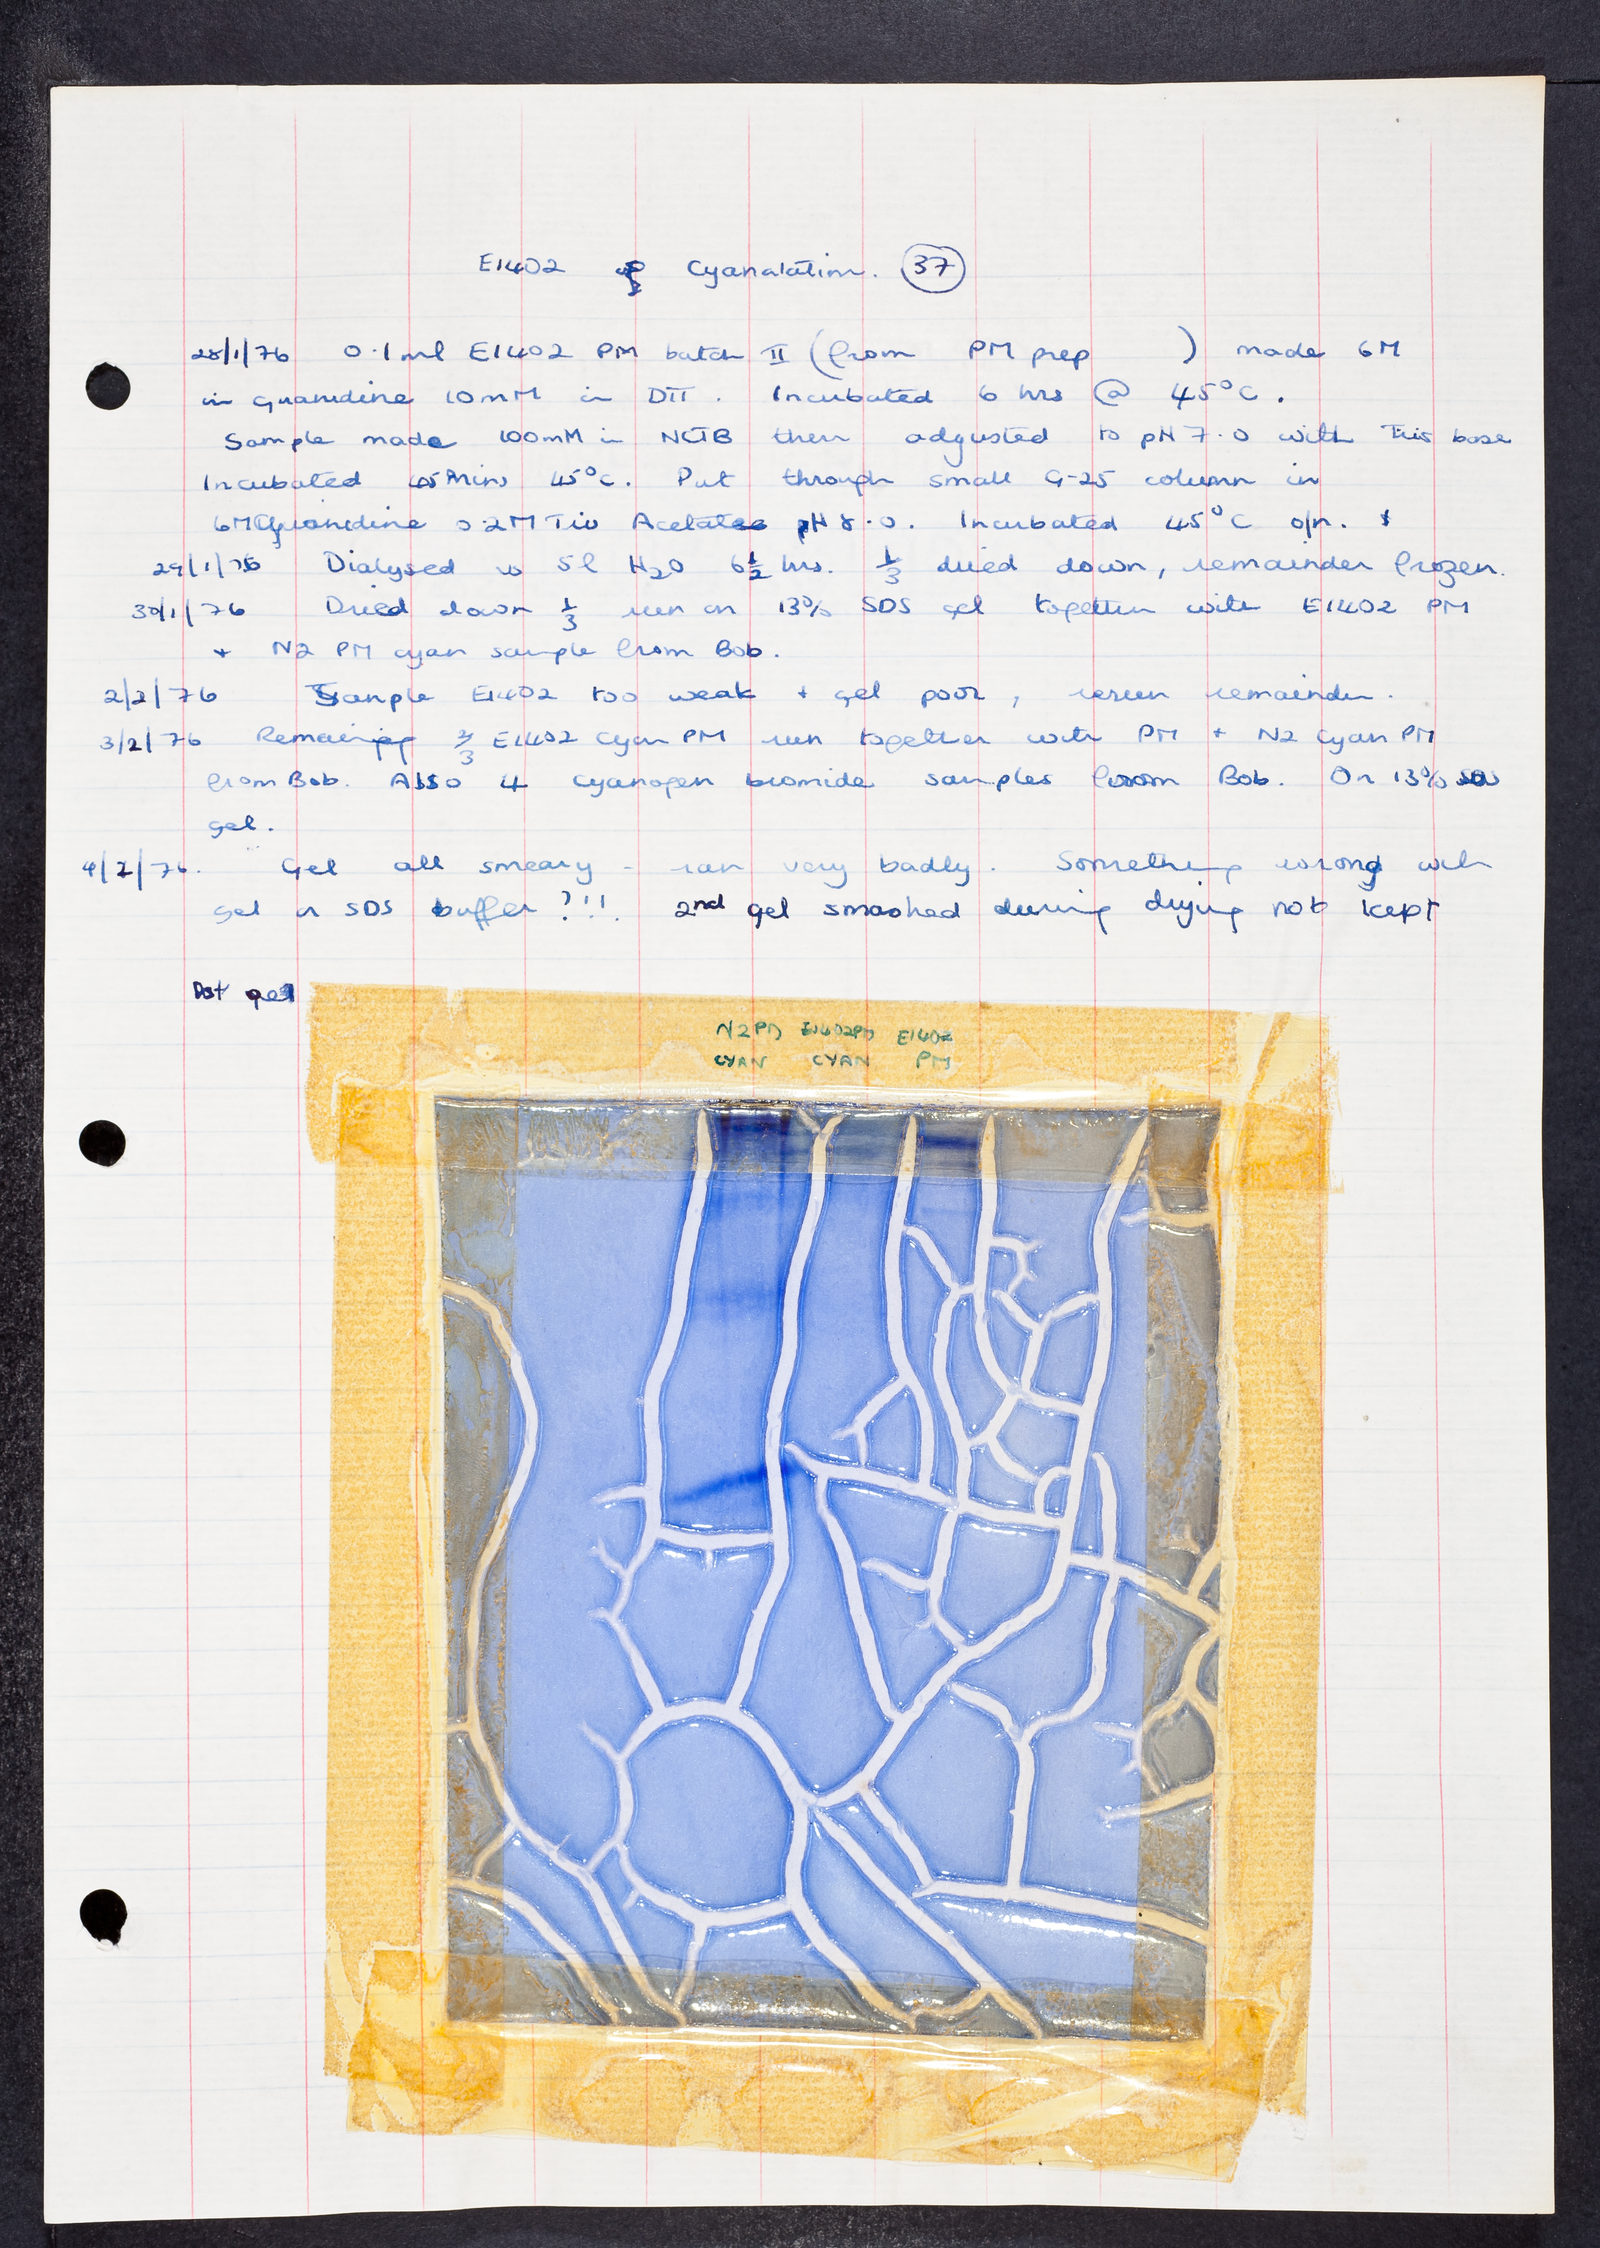 E1402 Cyanalation. 37
28/1/76 0.1ml E1402 PM batch II (from PM prep ) made 6M
in guanidine 10mM in DTT. Incubated 6 hrs @ 45°C.
Sample made 100mM in NCTB then adjusted to pH 7.0 with Tris base
Incubated 45 mins 45°C. Put through small G-25 column in
6M Guanidine 0.2M Tris Acetate pH 8.0. Incubated 45°C o/n.
29/1/76 Dialysed vs 5l H2O 6½ hrs. ⅓ dried down, remainder frozen.
30/1/76 Dried down ⅓ run on 13% SDS gel together with E1402 PM
+ N2 PM cyan sample from Bob.
2/2/76 Sample E1402 too weak + gel poor, rerun remainder.
3/2/76 Remaining ⅔ E1402 cyan PM run together with PM + N2 cyan PM
from Bob. Also 4 cyanogen bromide samples from Bob. On 13% SDS
gel.
4/2/76. Gel all smeary - ran very badly. Something wrong with
gel or SDS buffer?!!! 2nd gel smashed during drying not kept
gel
N2PM E1402PM E1402
CYAN CYAN PM